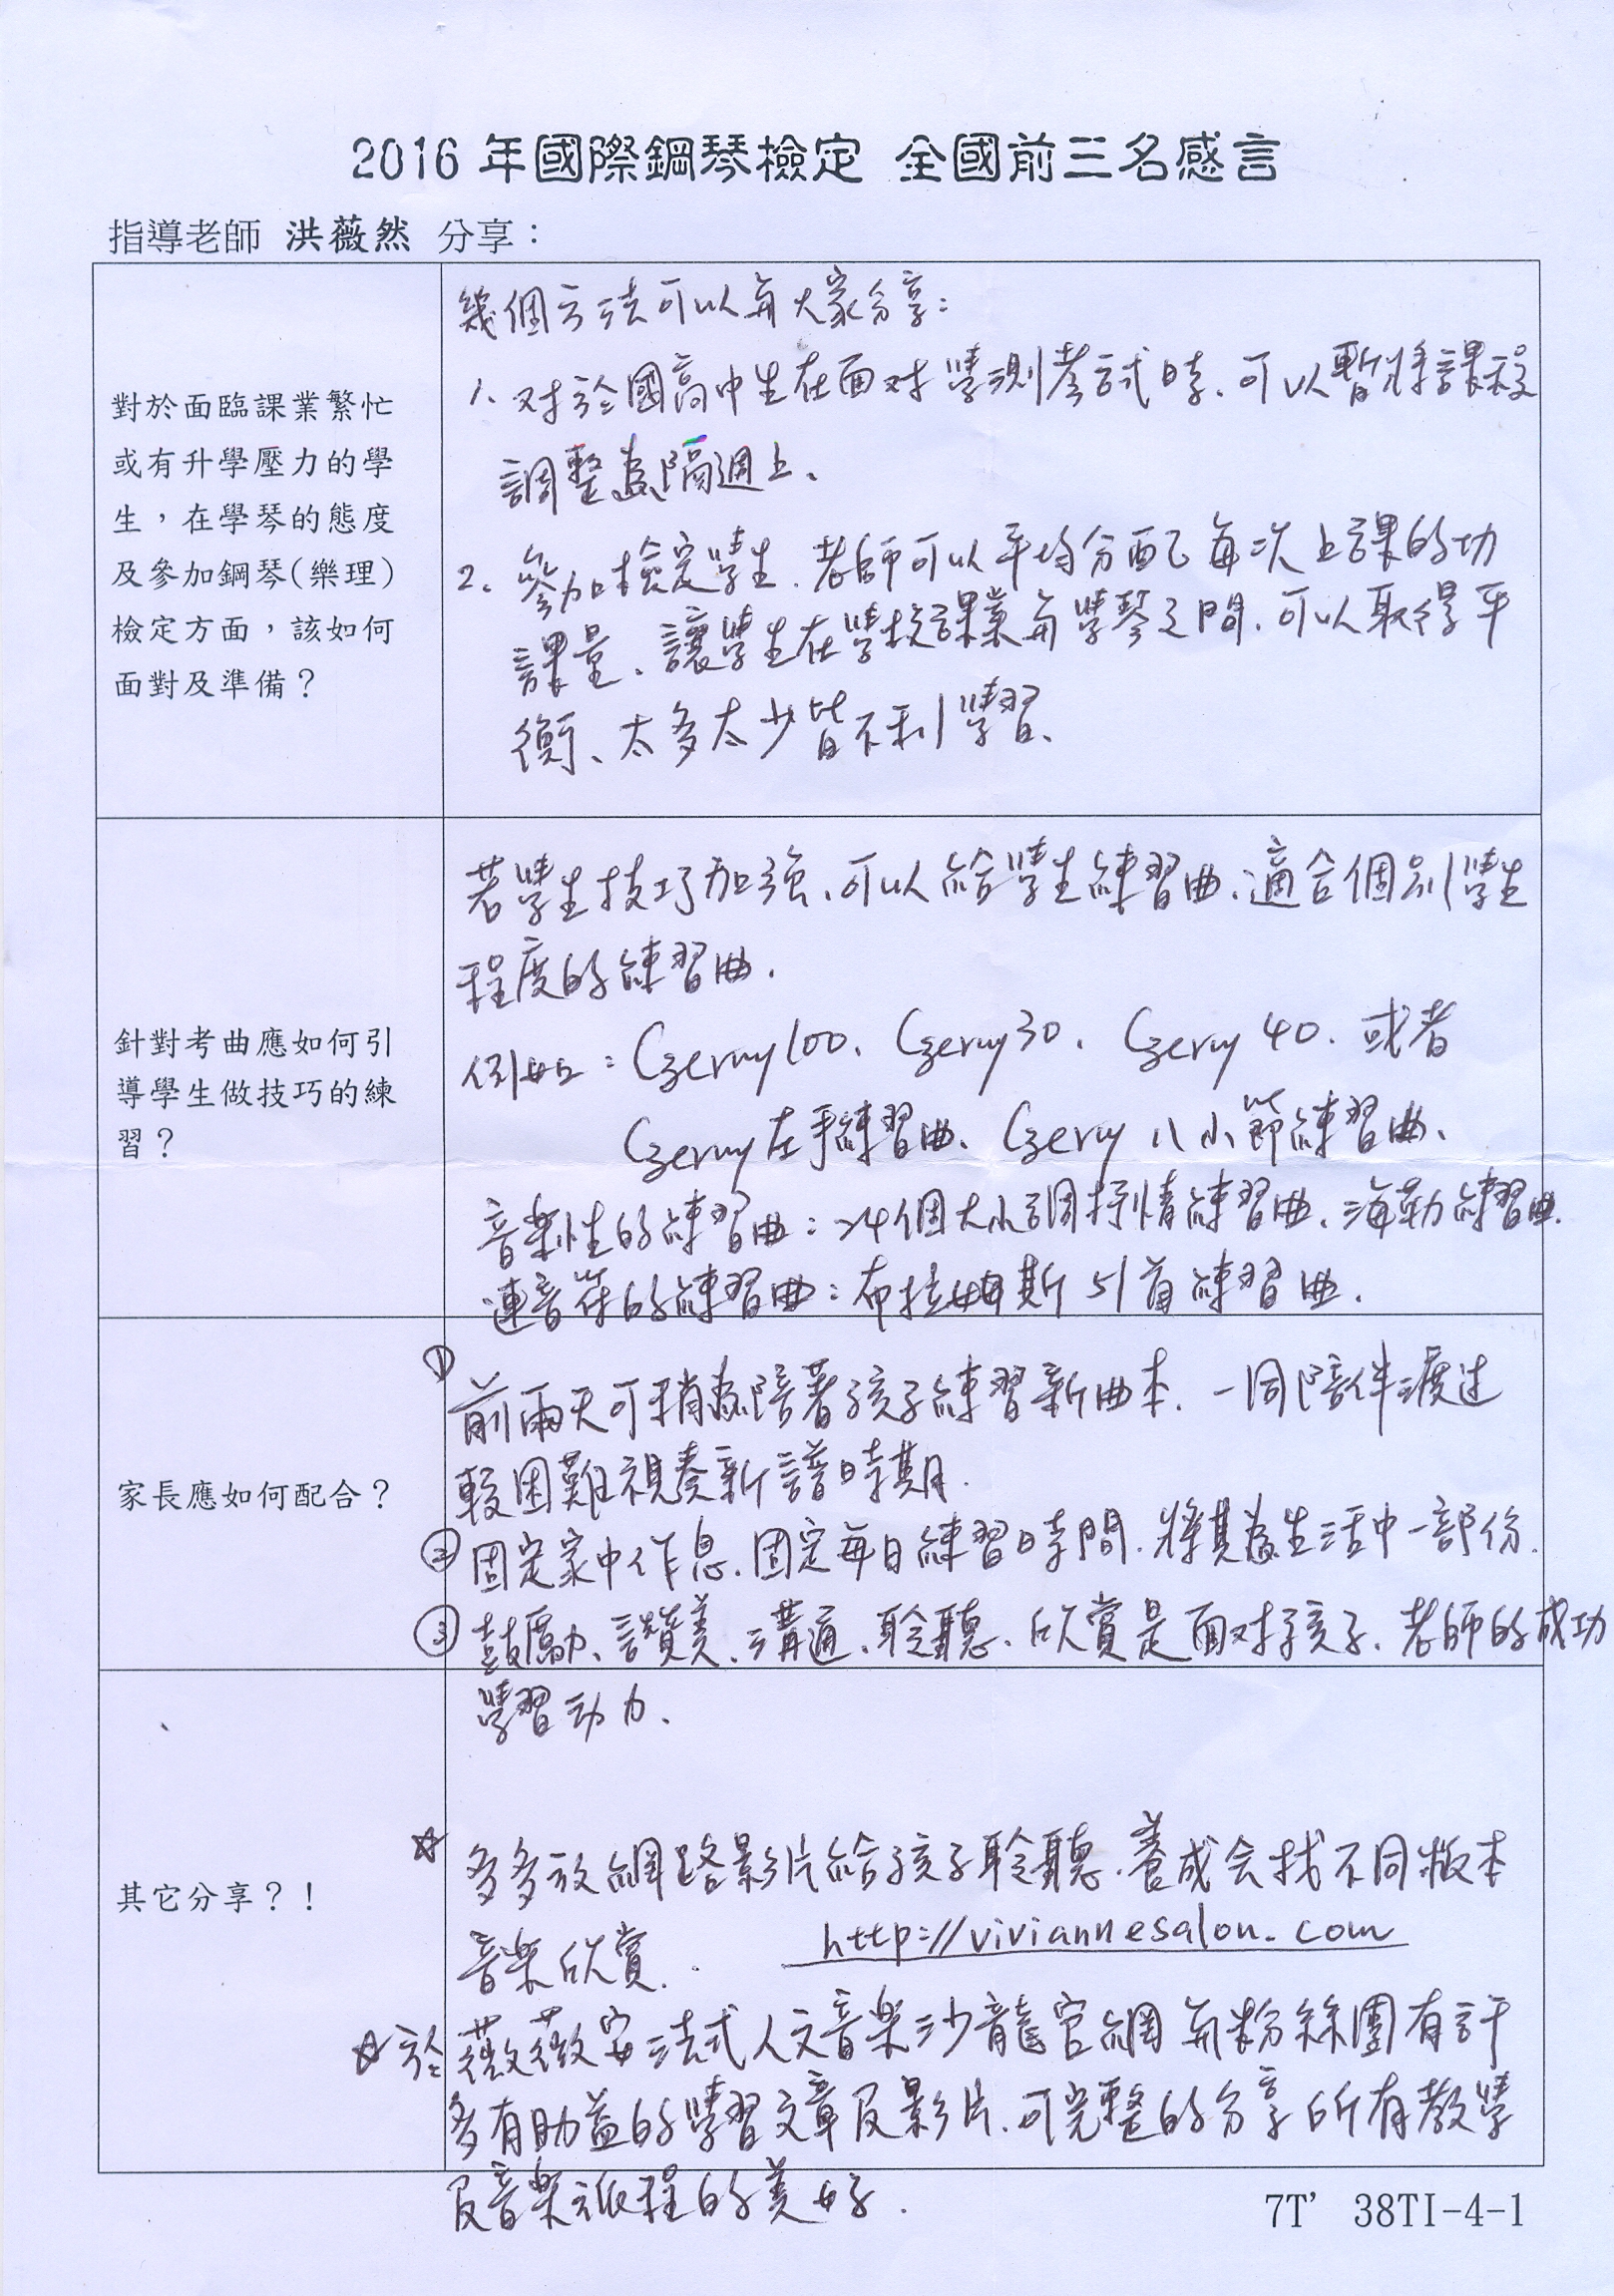 2016 年國際鋼琴檢定 全國前三名感言
指導老師 洪薇然 分享：
對於面臨課業繁忙
或有升學壓力的學
生，在學琴的態度
及參加鋼琴(樂理)
檢定方面，該如何
面對及準備？
幾個方法可以與大家分享：
1、对於國高中生在面对學測考試時、可以暫將課程
調整為隔週上、
2、參加檢定學生、老師可以平均分配每次上課的功
課量、讓學生在學校課業與學琴之間、可以取得平
衡、太多太少皆不利學習、
針對考曲應如何引
導學生做技巧的練
習？
若學生技巧加強、可以給學生練習曲、適合個別學生
程度的練習曲．
例如：Czerny100、Czerny30、Czerny 40、或者
Czerny左手練習曲、Czerny 八小節練習曲、
音樂性的練習曲：24個大小調抒情練習曲、海勒練習曲.
連音符的練習曲：布拉姆斯 51首練習曲．
家長應如何配合？
① 前兩天可稍為陪著孩子練習新曲本、一同陪伴渡过
較困難視奏新譜時期．
② 固定家中作息、固定每日練習時間、將其為生活中一部份．
③ 鼓勵、讚美、溝通、聆聽、欣賞是面对孩子、老師的成功
學習动力、
其它分享？！
☆ 多多放網路影片給孩子聆聽、養成会找不同版本
音樂欣賞．
http://viviannesalon.com
☆於薇薇安法式人文音樂沙龍官網與粉絲團有許
多有助益的學習文章及影片、可完整的分享所有教學
及音樂旅程的美好．
7T’ 38TI-4-1